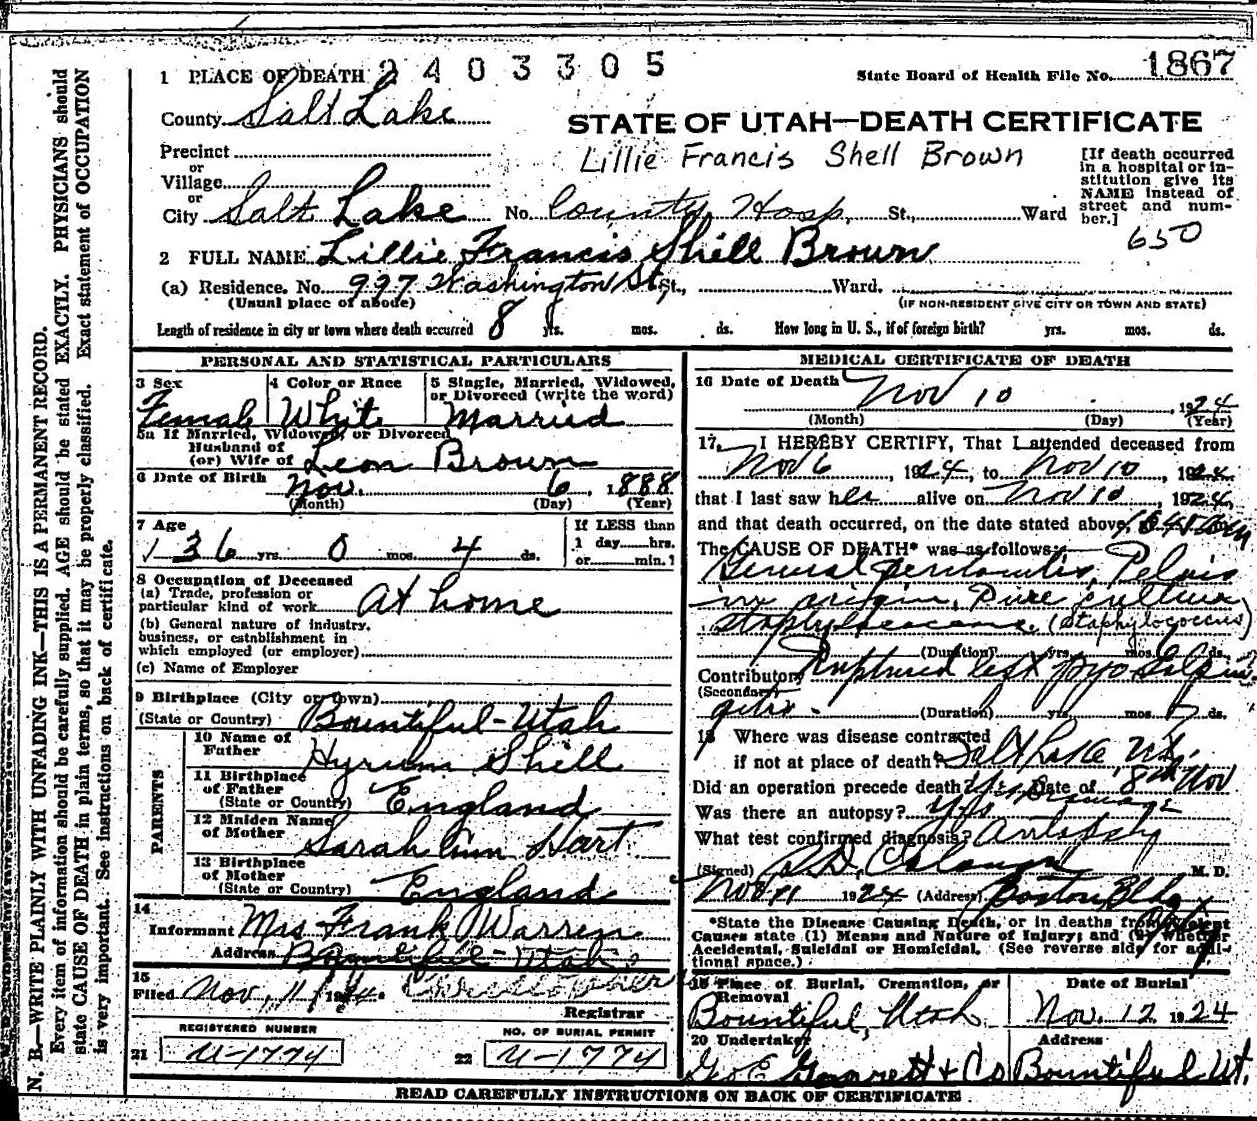 1 PLACE OF DEATH 2403305
State Board of Health File No. 1867
County Salt Lake
STATE OF UTAH—DEATH CERTIFICATE
Lillie Francis Shell Brown
Precinct
or
Village
or
City Salt Lake No. County Hosp. St., Ward
[If death occurred
in a hospital or in-
stitution give its
NAME instead of
street and num-
ber.]
650
2 FULL NAME Lillie Francis Shell Brown
(a) Residence. No. 997 Washington St. St., Ward.
(Usual place of abode) (IF NON-RESIDENT GIVE CITY OR TOWN AND STATE)
Length of residence in city or town where death occurred 8 yrs. mos. ds. How long in U. S., if of foreign birth? yrs. mos. ds.
PERSONAL AND STATISTICAL PARTICULARS
3 Sex 4 Color or Race 5 Single, Married, Widowed,
or Divorced (write the word)
Female White Married
5a If Married, Widowed, or Divorced
Husband of
(or) Wife of Leon Brown
6 Date of Birth Nov. 6, 1888
(Month) (Day) (Year)
7 Age If LESS than
36 yrs. 0 mos. 4 ds. 1 day......hrs.
or......min.?
8 Occupation of Deceased
(a) Trade, profession or
particular kind of work At home
(b) General nature of industry,
business, or establishment in
which employed (or employer)
(c) Name of Employer
9 Birthplace (City or Town)
(State or Country) Bountiful - Utah
PARENTS
10 Name of
Father Hyrum Shell
11 Birthplace
of Father
(State or Country) England
12 Maiden Name
of Mother Sarah Ann Hart
13 Birthplace
of Mother
(State or Country) England
14
Informant Mrs Frank Warren
Address Bountiful - Utah
15
Filed Nov. 11, 1924.
Registrar
REGISTERED NUMBER NO. OF BURIAL PERMIT
21 U-1774 22 U-1774
MEDICAL CERTIFICATE OF DEATH
16 Date of Death Nov 10, 1924
(Month) (Day) (Year)
17. I HEREBY CERTIFY, That I attended deceased from
Nov 6, 1924, to Nov 10, 1924
that I last saw her alive on Nov 10, 1924,
and that death occurred, on the date stated above,
The CAUSE OF DEATH* was as follows:
General peritonitis, Pelvic
in origin. Pure culture
(Staphylococcus)
(Duration) yrs. mos. 6 ds.
Contributory Ruptured left pyo salpin
(Secondary)
gitis. (Duration) yrs. mos. 7 ds.
18 Where was disease contracted
if not at place of death? Salt Lake Ut.
Did an operation precede death? Yes Date of 8th Nov
Drainage
Was there an autopsy? Yes
What test confirmed diagnosis? Autopsy
(Signed) M. D.
Nov 11 1924 (Address) Boston Bldg
*State the Disease Causing Death, or in deaths from Violent
Causes state (1) Means and Nature of Injury; and (2) whether
Accidental, Suicidal or Homicidal. (See reverse side for addi-
tional space.)
19 Place of Burial, Cremation, or
Removal Date of Burial
Bountiful, Utah Nov. 12 1924
20 Undertaker Address
Geo E Garrett & Co Bountiful Ut.
READ CAREFULLY INSTRUCTIONS ON BACK OF CERTIFICATE
N. B.—WRITE PLAINLY WITH UNFADING INK—THIS IS A PERMANENT RECORD.
Every item of information should be carefully supplied. AGE should be stated EXACTLY. PHYSICIANS should
state CAUSE OF DEATH in plain terms, so that it may be properly classified. Exact statement of OCCUPATION
is very important. See instructions on back of certificate.